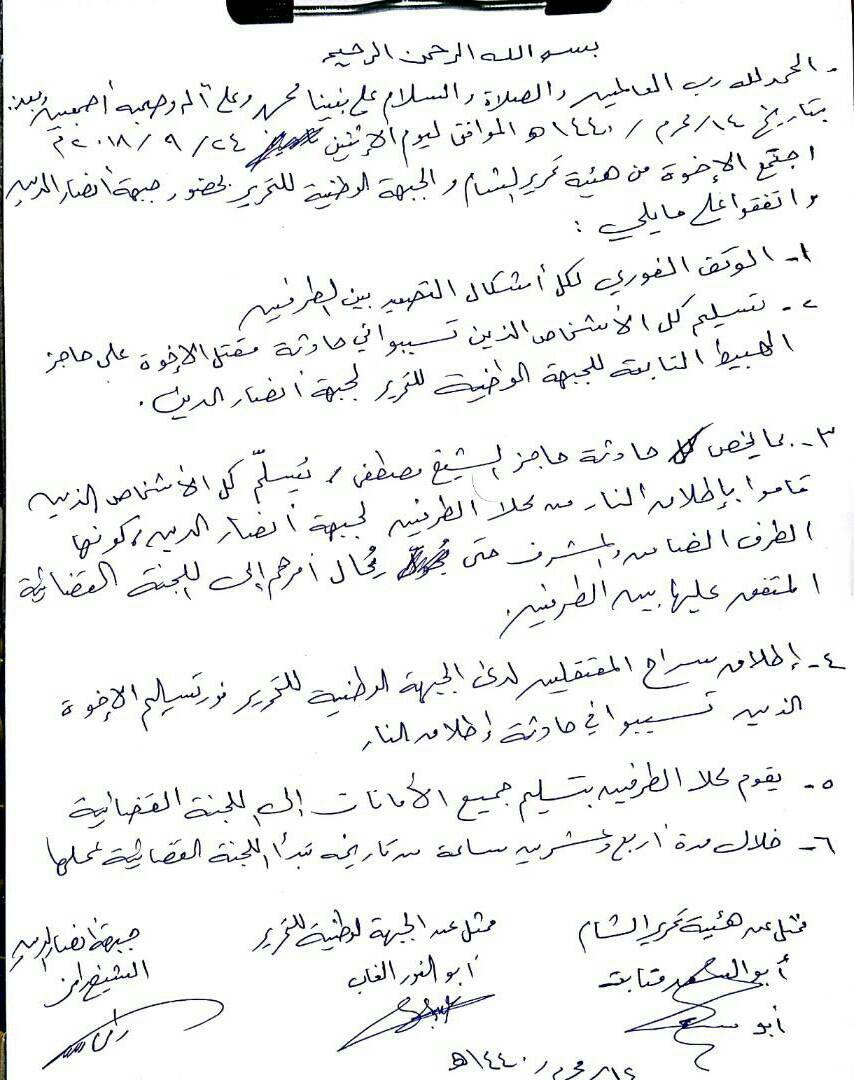 بسم الله الرحمن الرحيم
- الحمد لله رب العالمين والصلاة والسلام على نبينا محمد وعلى آله وصحبه أجمعين وبعد:
بتاريخ ١٤/ محرم / ١٤٤٠هـ الموافق ليوم الإثنين ٢٤ / ٩ / ٢٠١٨م
اجتمع الإخوة من هيئة تحرير الشام والجبهة الوطنية للتحرير بحضور جبهة أنصار الدين
واتفقوا على ما يلي :
١- الوقف الفوري لكل أشكال التصعيد بين الطرفين
٢- تسليم كل الأشخاص الذين تسببوا في حادثة مقتل الإخوة على حاجز
الهبيط التابعة للجبهة الوطنية للتحرير لجبهة أنصار الدين.
٣- بما يخص حادثة حاجز الشيخ مصطفى، يُسلّم كل الأشخاص الذين
قاموا بإطلاق النار من كلا الطرفين لجبهة أنصار الدين، كونها
الطرف الضامن والمشرف حتى يُحال أمرهم إلى اللجنة القضائية
المتفق عليها بين الطرفين.
٤- إطلاق سراح المعتقلين لدى الجبهة الوطنية للتحرير فور تسليم الإخوة
الذين تسببوا في حادثة إطلاق النار
٥- يقوم كلا الطرفين بتسليم جميع الأمانات إلى اللجنة القضائية
٦- خلال مدة أربع وعشرين ساعة من تاريخه تبدأ اللجنة القضائية عملها
ممثل عن هيئة تحرير الشام
ممثل عن الجبهة الوطنية للتحرير
جبهة أنصار الدين
أبو
أبو النور الغاب
الشيخ رامز
أبو
١٤/ محرم / ١٤٤٠هـ